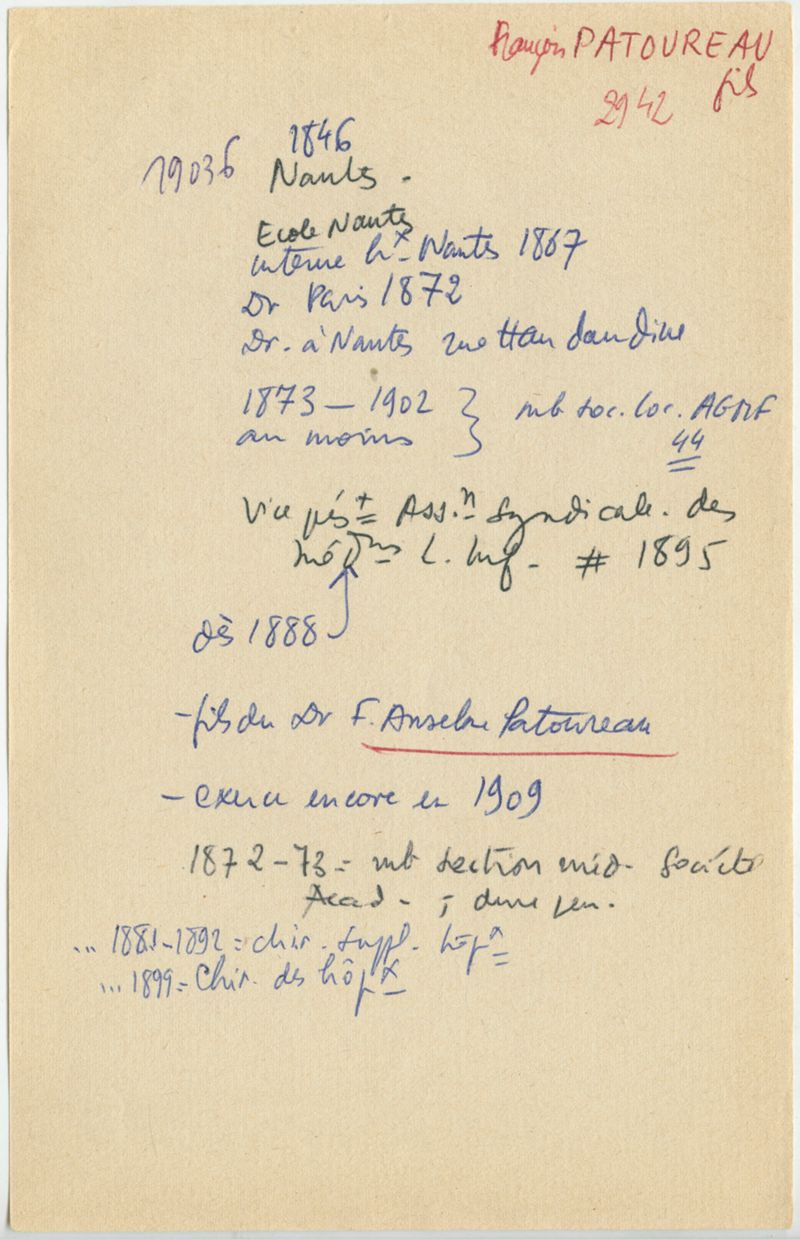 François PATOUREAU
fils
2942
1846
19036 Nantes -
Ecole Nantes
interne hx Nantes 1867
Dr Paris 1872
Dr. à Nantes rue Haudaudine
1873 - 1902 } mb soc. loc. AGMF
au moins 44
Vice prést Ass.n Syndicale des
Médns L. Inf. # 1895
dès 1888
- fils du Dr F. Anselme Patoureau
- exerce encore en 1909
1872-73 = mb section méd. Société
Acad - ;
... 1881-1892 = chir. suppl. hôpx
... 1899 = Chir. des hôpx